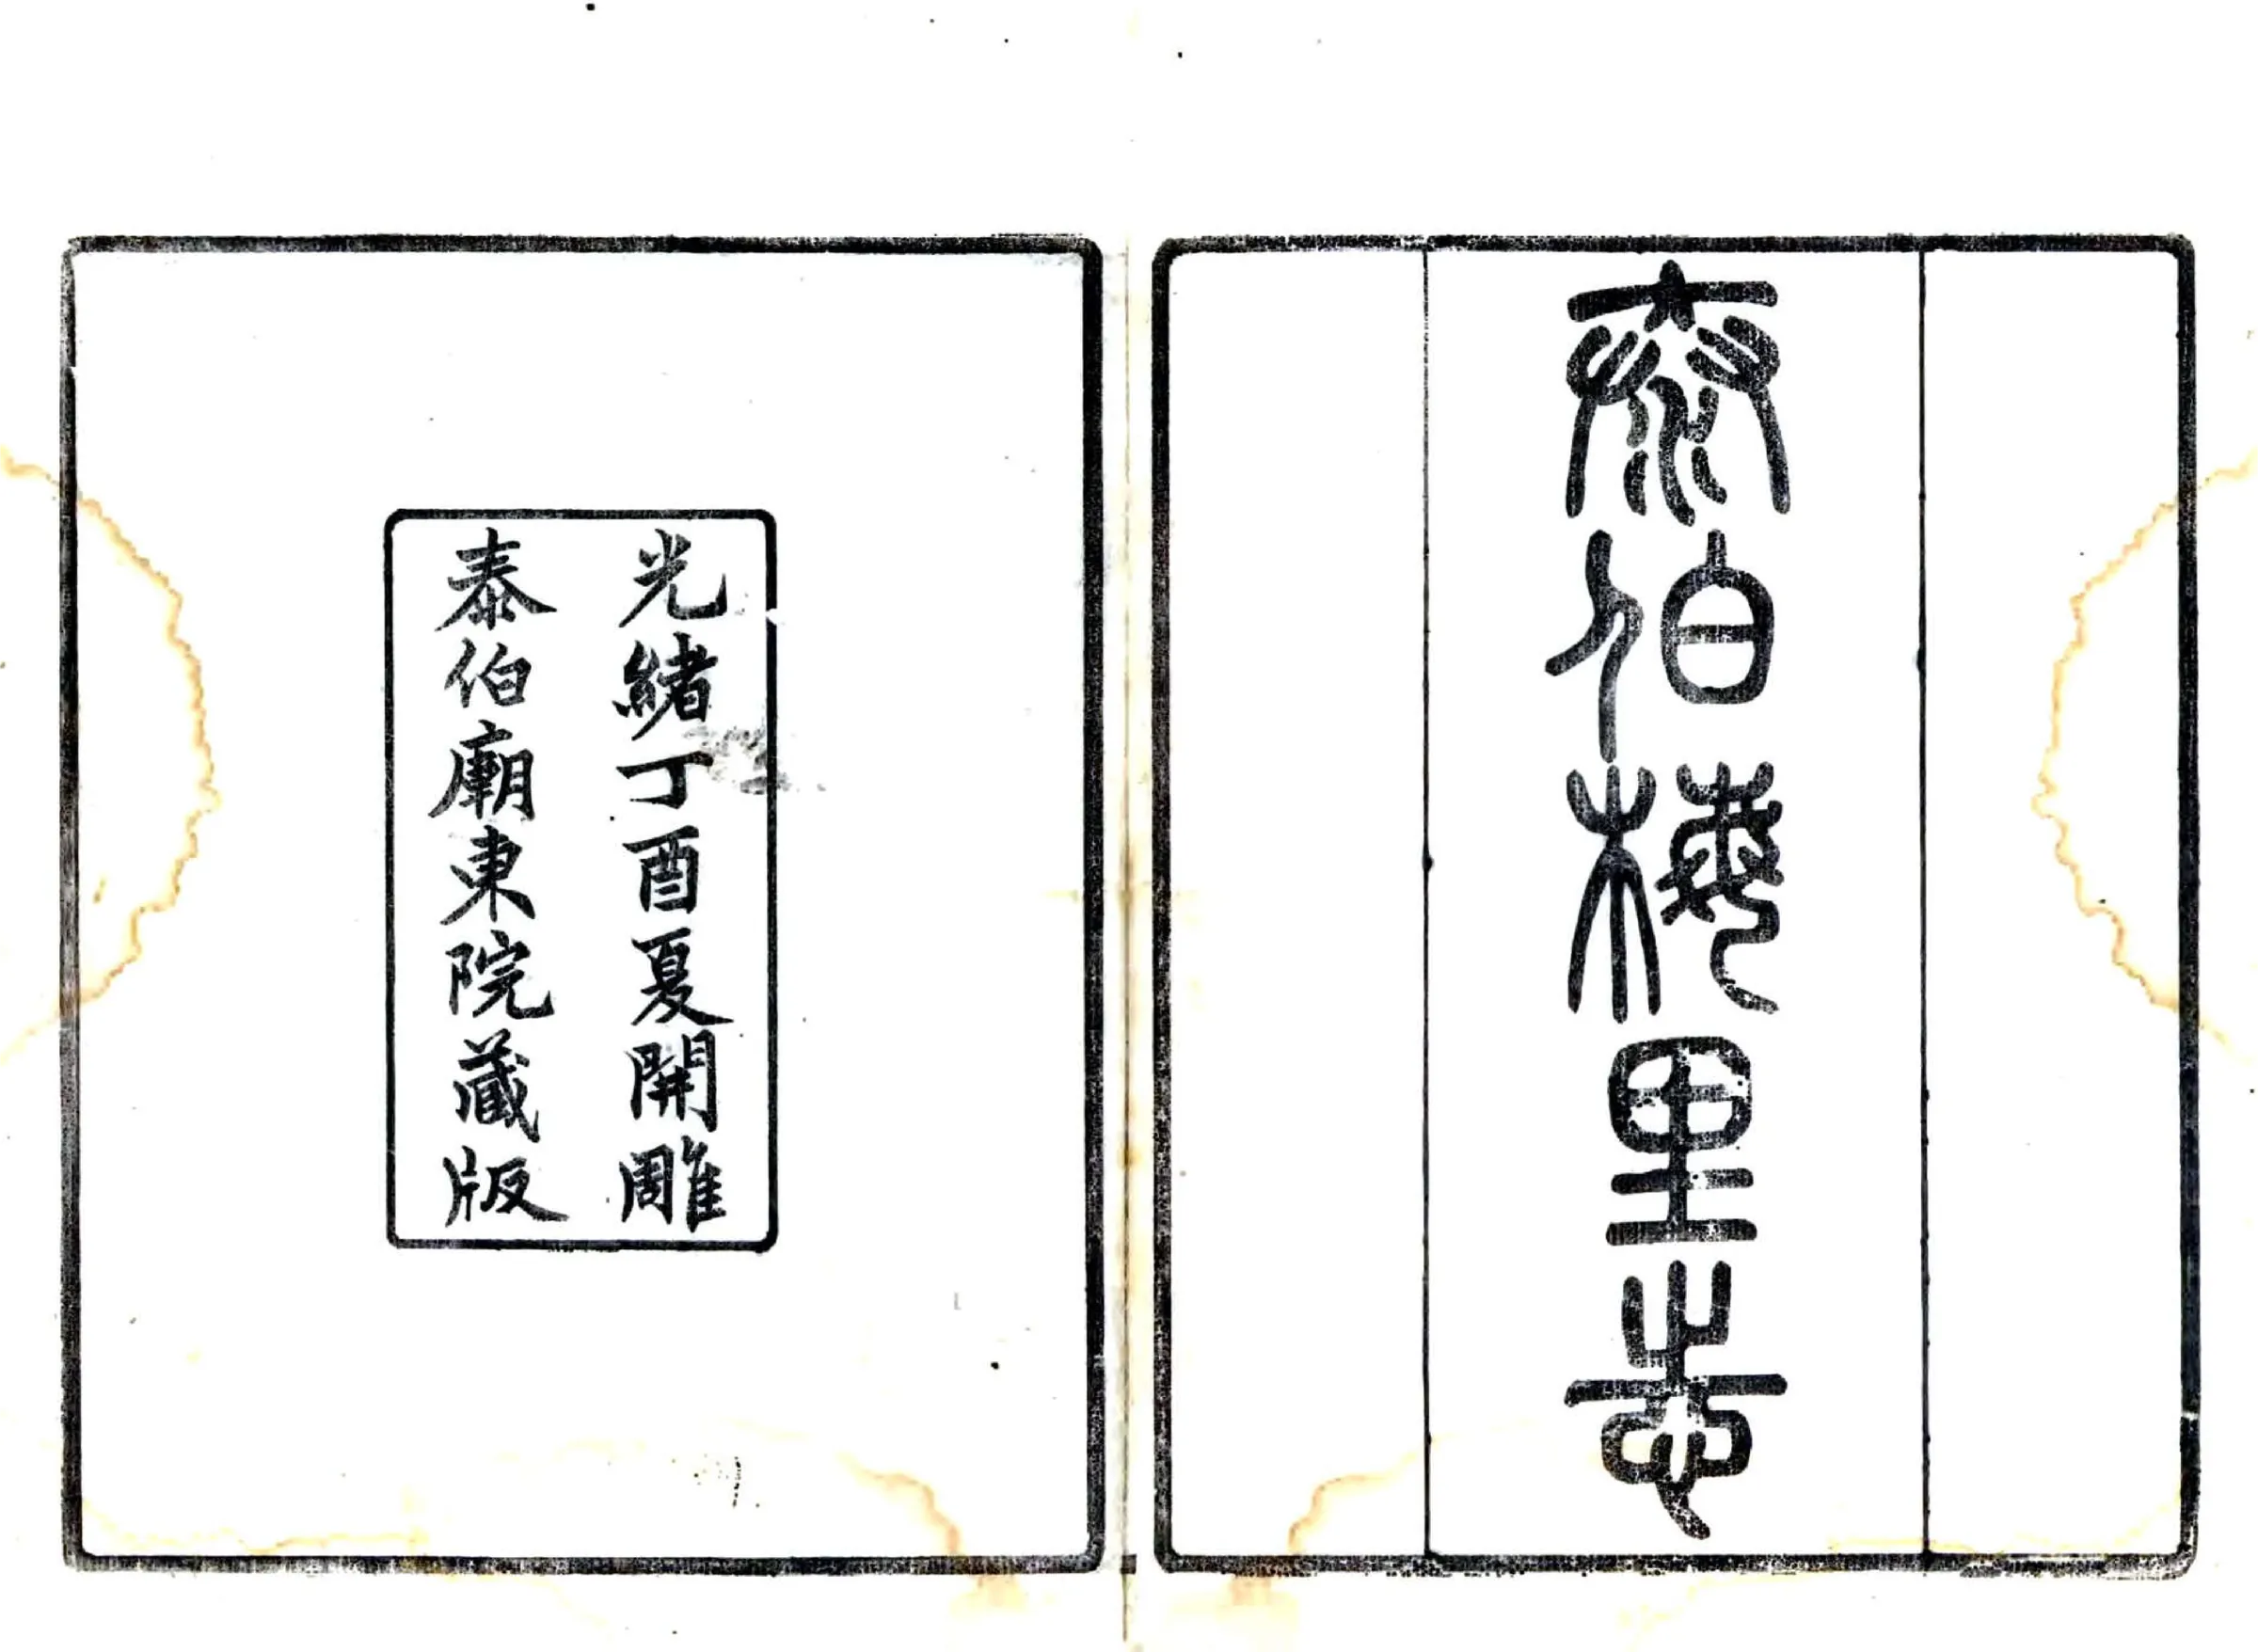 泰伯梅里志
光緒丁酉夏開雕
泰伯廟東院藏版